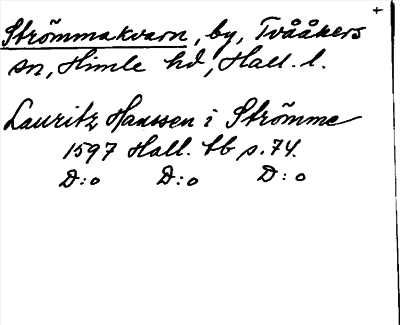 +
Strömmakvarn, by, Tvååkers
sn, Himle hd, Hall. l.
Lauritz Hanssen i Strömme
1597 Hall. tb s. 74.
D:o D:o D:o